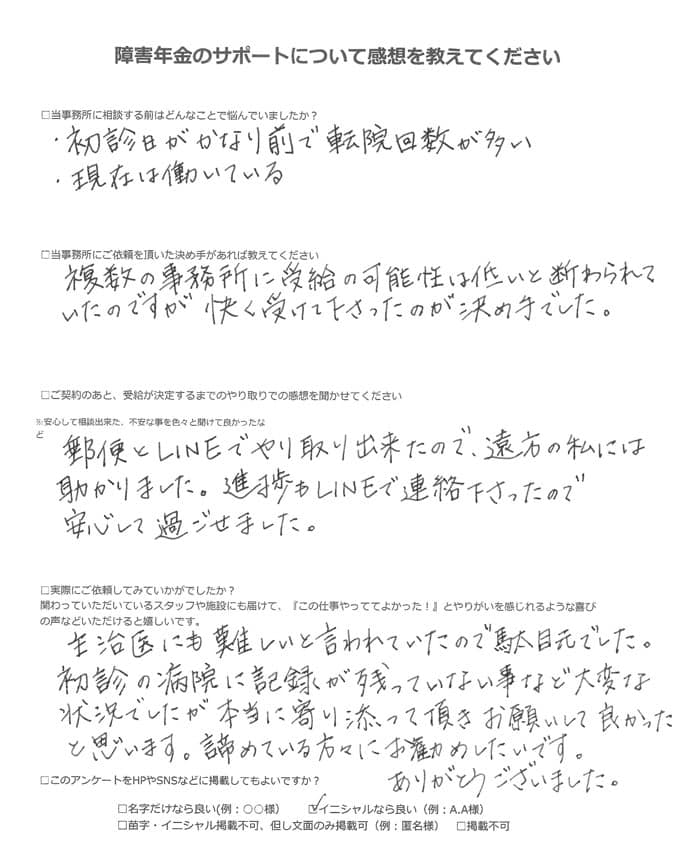 障害年金のサポートについて感想を教えてください
□当事務所に相談する前はどんなことで悩んでいましたか？
・初診日がかなり前で転院回数が多い
・現在は働いている
□当事務所にご依頼を頂いた決め手があれば教えてください
複数の事務所に受給の可能性は低いと断わられて
いたのですが快く受けて下さったのが決め手でした。
□ご契約のあと、受給が決定するまでのやり取りでの感想を聞かせてください
※安心して相談出来た、不安な事を色々と聞けて良かったな
ど
郵便とLINEでやり取り出来たので、遠方の私には
助かりました。進捗もLINEで連絡下さったので
安心して過ごせました。
□実際にご依頼してみていかがでしたか？
関わっていただいているスタッフや施設にも届けて、『この仕事やっててよかった！』とやりがいを感じれるような喜び
の声などいただけると嬉しいです。
主治医にも難しいと言われていたので駄目元でした。
初診の病院に記録が残っていない事など大変な
状況でしたが本当に寄り添って頂きお願いして良かった
と思います。諦めている方々にお勧めしたいです。
ありがとうございました。
□このアンケートをHPやSNSなどに掲載してもよいですか？
□名字だけなら良い(例：○○様） ☑イニシャルなら良い（例：A.A様）
□苗字・イニシャル掲載不可、但し文面のみ掲載可（例：匿名様） □掲載不可